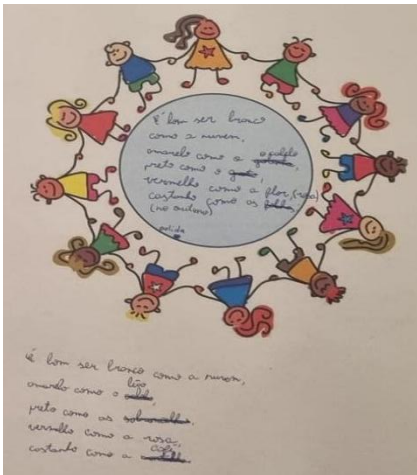 É bom ser branco
como a nuvem,
amarelo como a o golfo
preto como o gato,
vermelho como a flor, (rosa)
castanho como as
(no outono)
É bom ser branco como a nuvem,
amarelo como o leão
preto como as sobrancelhas,
vermelho como a rosa,
castanho como a